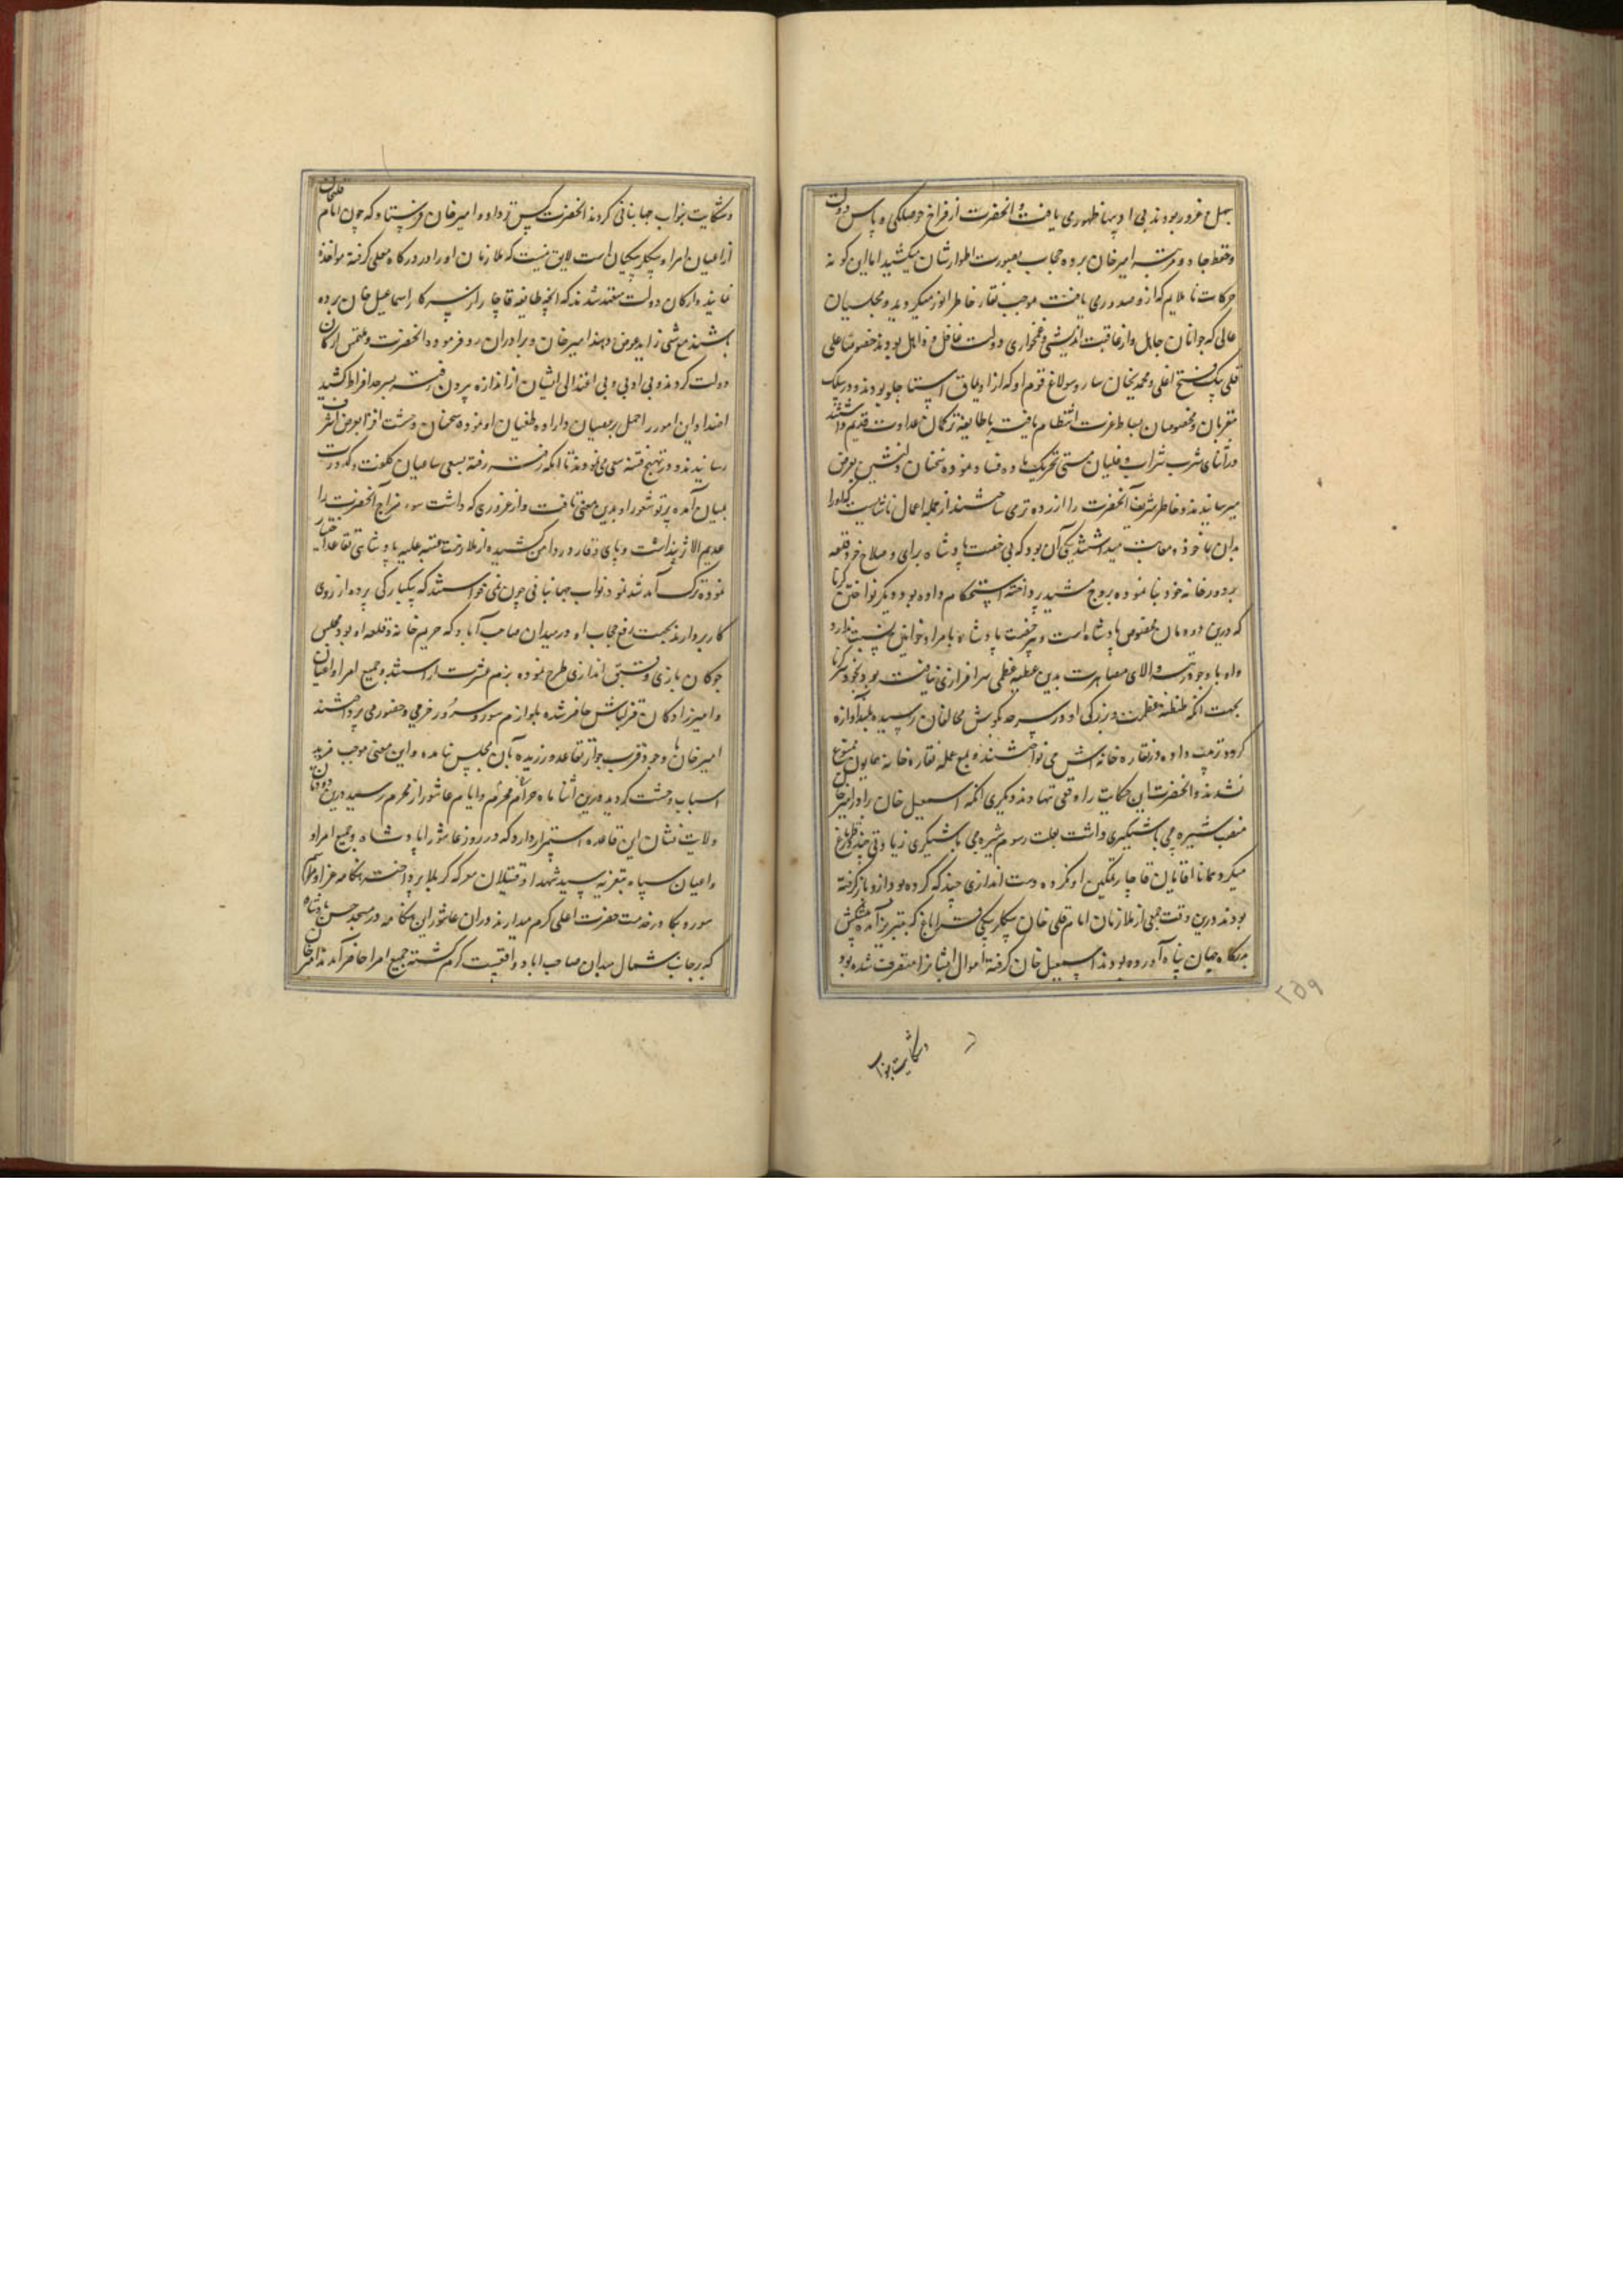 سهل غرور بودند بی ادبیها ظهوری یافت و آنحضرت از فراخ حوصلگی و پاس دولت
و حفظ جاه و مرتبه امیر خان پرده حجاب بصورت اطوارشان میکشید اما این گونه
حرکات ناملایم که ازو صدوری یافت موجب نقار خاطر انور میگردید و مجلسیان
عالی که جوانان جاهل و از عاقبت اندیشی و غمخواری دولت غافل و ذاهل بودند خصوصا علی
قلی بیک فتح اغلی و محمدیخان سارو سولاغ قوم او که از اویماق استاجلو بودند و در سلک
مقربان و مخصوصان بساط عزت انتظام یافته با طایفه ترکمان عداوت قدیم داشتند
در اثنای شرب شراب و غلیان مستی تحریک ماده فساد نموده سخنان دلنشین بعرض
میرسانیدند و خاطر شریف آنحضرت را ازرده تر می ساختند از جمله اعمال ناشایست که او را
بدان ماخوذ و معاتب میداشتند یکی آن بود که بی رخصت پادشاه برای و صلاح خود قلعه
بر دور خانه خود بنا نموده بروج مشید پرداخته استحکام داده بود و دیگر نواختن کرنا
که درین دودمان مخصوص پادشاه است و بی رخصت پادشاه بامرا و خوانین نسبت ندارد
و او با وجود رتبه والای مصاهرت بدین عطیه عظمی سرافرازی نیافته بود بخود سر کرنا
بجهت آنکه طنطنه عظمت و بزرگی او در سرحد بگوش مخالفان رسیده بلند آوازه
گردد ترتیب داده در نقاره خانه اش می نواختند و بمنع عمله نقاره خانه همایون ممنوع
نشدند و آنحضرت این حکایت را وقعی نهادند دیگری آنکه اسمعیل خان برادر امیر خان
منصب شیره چی باشیگری داشت بعلت رسوم شیره چی باشیگری زیادتی چند
میکرد همانا آقایان قاجار تمکین او نکرده دست اندازی چند که کرده بود ازو باز گرفته
بودند درین وقت جمعی از ملازمان امام قلی خان بیگلربیگی قراباغ که بتبریز آمده پیشکش
بدرگاه جهان پناه آورده بودند اسمعیل خان گرفته اموال ایشانرا متصرف شده بود
۲۵۹
و شکایت بنواب
و شکایت بنواب جهانبانی کردند آنحضرت کس نزد او و امیر خان فرستاد که چون امام قلیخان
از اعیان امرا و بیگلربیگیان است لایق نیست که ملازمان او را در درگاه معلی گرفته مواخذه
نمایند و ارکان دولت متعهد شدند که آنچه طایفه قاجار از سرکار اسماعیل خان برده
باشند مع شی زاید عوض دهند امیر خان و برادران رد فرموده آنحضرت و ملتمس ارکان
دولت کردند و بی ادبی و بی اعتدالی ایشان از اندازه بیرون رفته بسرحد افراط کشید
اضداد این امور را حمل بر عصیان و اراده طغیان او نموده سخنان وحشت افزا بعرض اشرف
رسانیدند و در تهییج فتنه سعی می نمودند تا آنکه رفته رفته بسعی ساعیان کلفت و کدورت
بمیان آمده پرتو شعور او بدین معنی تافت و از غروری که داشت سوء مزاج آنحضرت را
عدیم الاثر پنداشت و پای وقار در دامن کشیده از ملازمت عتبه علیه پادشاهی تقاعد اختیار
نموده ترک آمد شد نمود نواب جهانبانی چون نمی خواستند که بیکبارگی پرده از روی
کار بردارند بجهت رفع حجاب او در میدان صاحب آباد که حریم خانه و قلعه او بود مجلس
چوگان بازی و قبق اندازی طرح نموده بزم عشرت آراستند و جمیع امرا و اعیان
و امیرزادگان قزلباش حاضر شده بلوازم سور و سرور خرمی و حضور می پرداختند
امیر خان با وجود قرب جوار تقاعد ورزیده بآن مجلس نیامده و این معنی موجب مزید
اسباب وحشت گردید درین اثنا ماه حرام محرم و ایام عاشورا از محرم رسید درین دودمان
ولایت نشان این قاعده استمرار دارد که در روز عاشورا پادشاه و جمیع امرا و
و اعیان سپاه بتعزیه سید شهدا و قتیلان معرکه کربلا پرداخته هنگامه عزا و ماتم
سوروبکا در خدمت حضرت اعلی گرم میدارند در آن عاشورا این هنگامه در مسجد حسن پادشاه
که بر جانب شمال میدان صاحب اباد واقعیست گرم گشته جمیع امرا حاضر آمدند امیر خان